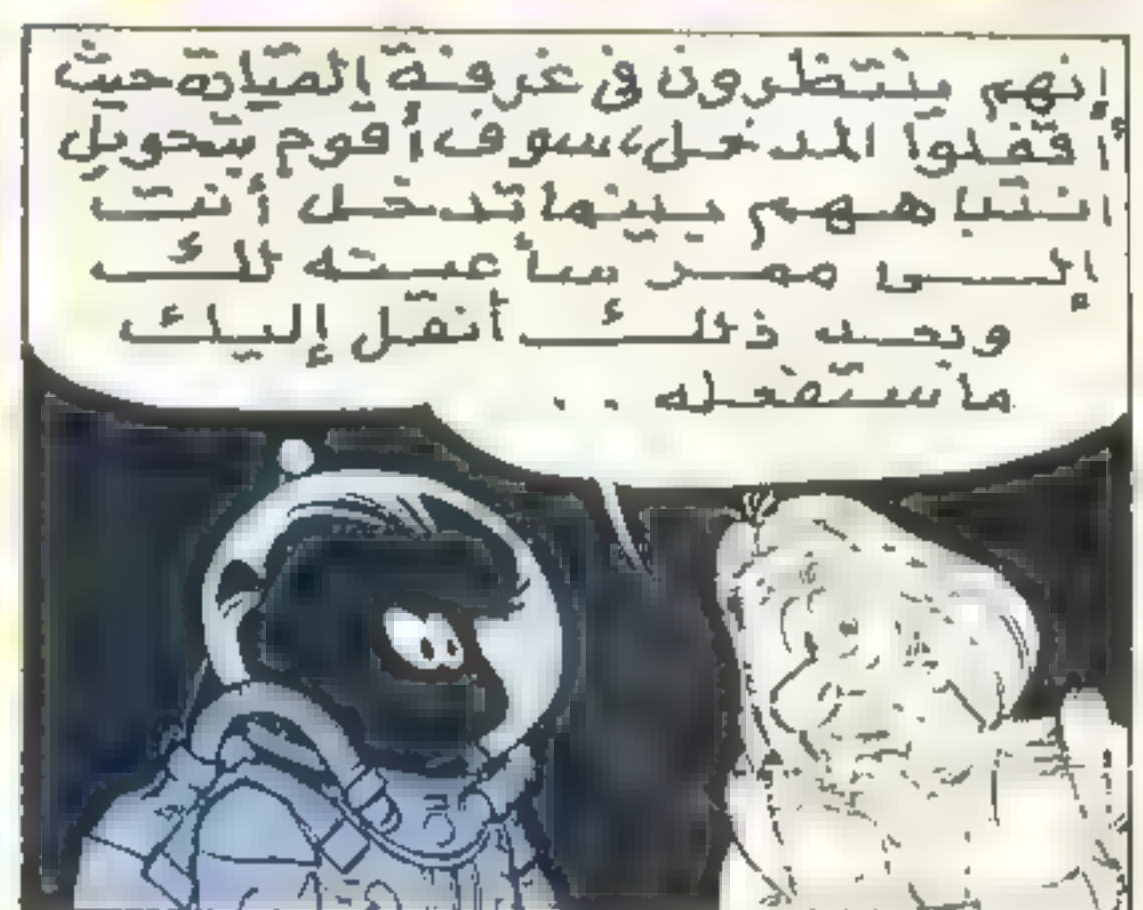 إنهم ينتظرون فى غرفة القيادة حيث
أقفلوا المدخل، سوف أقوم بتحويل
انتباههم بينما تدخل أنت
إلى ممر سأعينه لك
وبعد ذلك أنقل إليك
ماستفعله ..